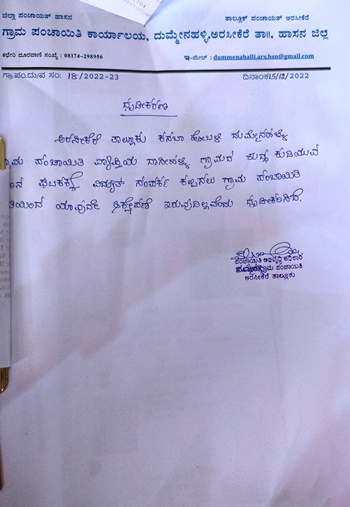 ಜಿಲ್ಲಾ ಪಂಚಾಯತ್ ಹಾಸನ ತಾಲ್ಲೂಕ್ ಪಂಚಾಯತ್ ಅರಸೀಕೆರೆ
ಗ್ರಾಮ ಪಂಚಾಯಿತಿ ಕಾರ್ಯಾಲಯ, ದುಮ್ಮೇನಹಳ್ಳಿ, ಅರಸೀಕೆರೆ ತಾ॥, ಹಾಸನ ಜಿಲ್ಲೆ
ಕಛೇರಿ ದೂರವಾಣಿ ಸಂಖ್ಯೆ : 08174-298956 ಇ-ಮೇಲ್ : dummenahalli.ars.hsn@gmail.com
ಗ್ರಾ.ಪಂ.ದು/ಪ ಸಂ: 18/2022-23 ದಿನಾಂಕ:15/12/2022
ದೃಢೀಕರಣ
ಅರಸೀಕೆರೆ ತಾಲ್ಲೂಕು ಕಸಬಾ ಹೋಬಳಿ ದುಮ್ಮೇನಹಳ್ಳಿ
ಪಂಚಾಯಿತಿ ವ್ಯಾಪ್ತಿಯ ಗ್ರಾಮದ ಶುದ್ಧ ಕುಡಿಯುವ
ಘಟಕಕ್ಕೆ ವಿದ್ಯುತ್ ಸಂಪರ್ಕ ಕಲ್ಪಿಸಲು ಗ್ರಾಮ ಪಂಚಾಯಿತಿ
ಯಾವುದೇ ಆಕ್ಷೇಪಣೆ ಇರುವುದಿಲ್ಲವೆಂದು ದೃಢೀಕರಿಸಿದೆ.
ಪಂಚಾಯಿತಿ ಅಭಿವೃದ್ಧಿ ಅಧಿಕಾರಿ
ಗ್ರಾಮ ಪಂಚಾಯಿತಿ
ಅರಸೀಕೆರೆ ತಾಲ್ಲೂಕು